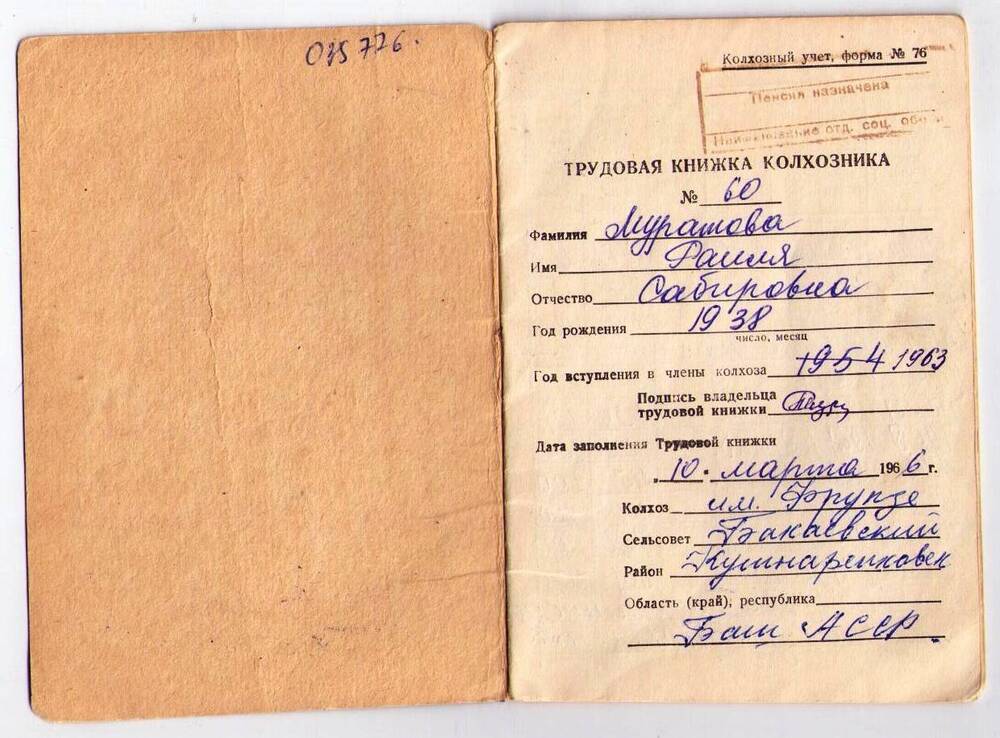 О35776.
Колхозный учет, форма № 76
Пенсия назначена
Наименование отд. соц.
ТРУДОВАЯ КНИЖКА КОЛХОЗНИКА
№ 60
Фамилия Муратова
Имя Раиля
Отчество Сабировна
Год рождения 1938
число, месяц
Год вступления в члены колхоза 1954 1963
Подпись владельца
трудовой книжки
Дата заполнения Трудовой книжки
„10" марта 1966 г.
Колхоз им. Фрунзе
Сельсовет Бакаевский
Район Кушнаренковск
Область (край), республика
Баш АССР